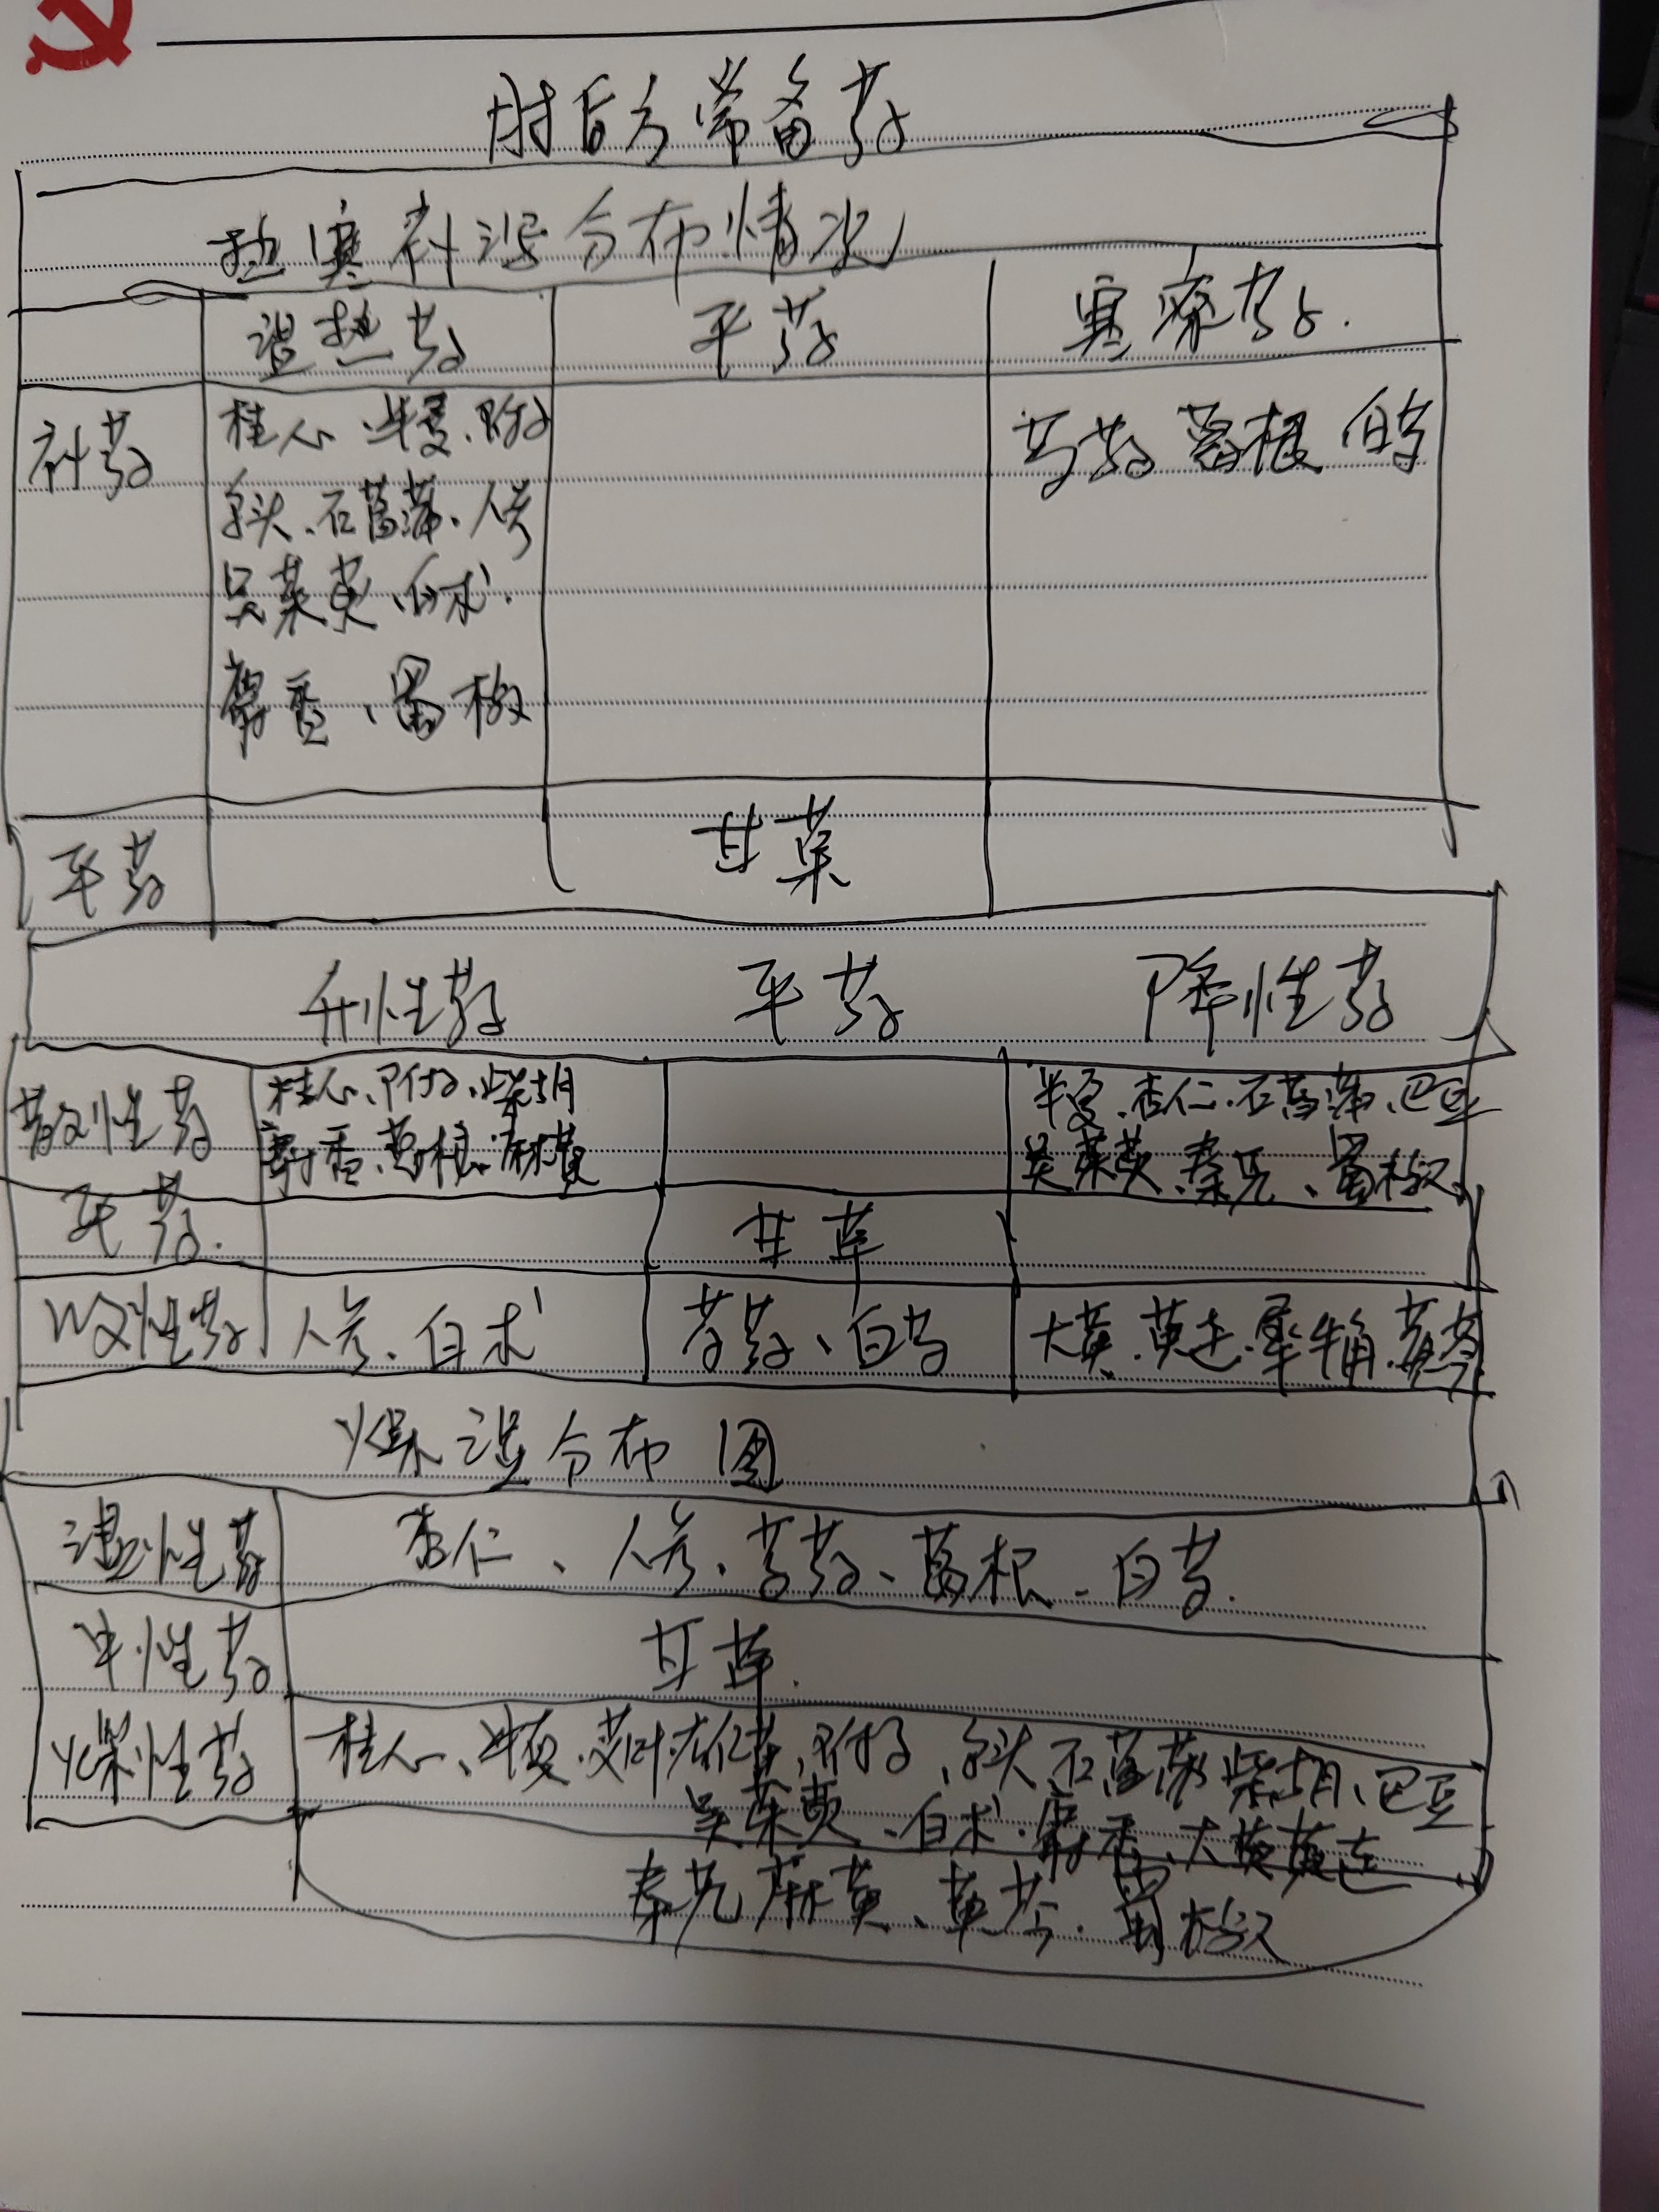 肘后方常备药
热寒补泻分布情况
温热药 平药 寒凉药.
补药 桂心、半夏、附子 芍药 葛根 白芍
乌头、石菖蒲、人参
吴茱萸、白术.
麝香、蜀椒
平药 甘草
升性药 平药 降性药
散性药 桂心、附子、柴胡 半夏、杏仁、石菖蒲、巴豆
麝香、葛根、麻黄 吴茱萸、秦艽、蜀椒
平药. 甘草
收性药 人参、白术 芍药、白芍 大黄、黄连、犀牛角、黄芩
燥湿分布图
湿性药 杏仁、人参、芍药、葛根、白芍.
中性药 甘草.
燥性药 桂心、半夏、艾叶、附子、乌头 石菖蒲 柴胡、巴豆
吴茱萸、白术、麝香、大黄 黄连
秦艽 麻黄、黄芩、蜀椒